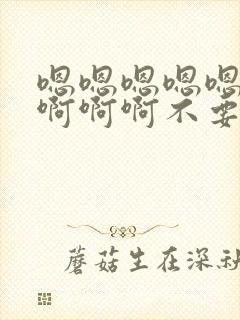 嗯嗯嗯嗯嗯
啊啊啊不要
蘑菇生在深